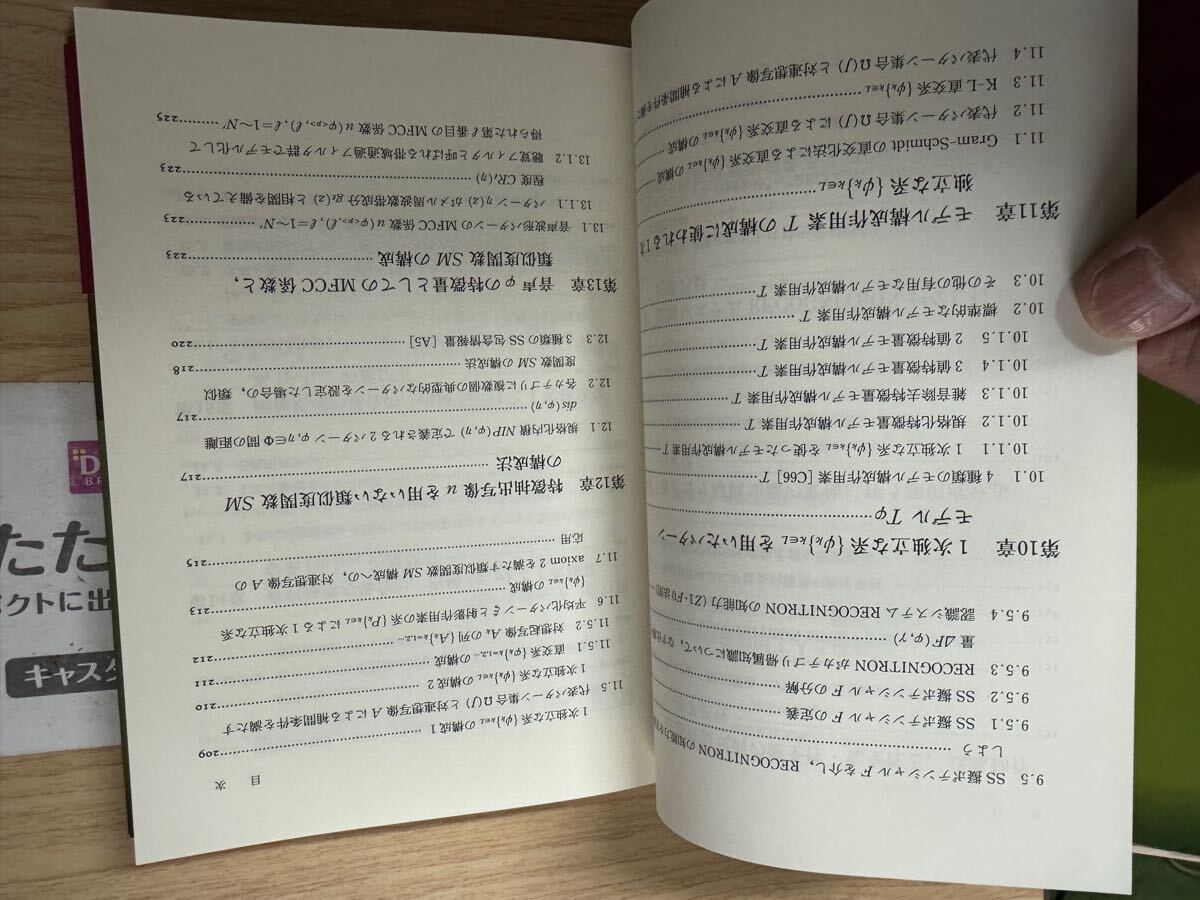 9.5 SS擬ポテンシャル F を介し，RECOGNITRON の知能力を
しよう
9.5.1 SS擬ポテンシャル F の定義
9.5.2 SS擬ポテンシャル F の分解
9.5.3 RECOGNITRON がカテゴリ帰属知識について，なす
量 ΔF(φ,γ)
9.5.4 認識システム RECOGNITRON の知能力
第10章 1次独立な系 {ψk}k∈L を用いたパターン
モデル Tφ
10.1 4種類のモデル構成作用素 [C66] T
10.1.1 1次独立な系 {ψk}k∈L を使ったモデル構成作用素 T
10.1.2 規格化特徴量モデル構成作用素 T
10.1.3 雑音除去特徴量モデル構成作用素 T
10.1.4 3値特徴量モデル構成作用素 T
10.1.5 2値特徴量モデル構成作用素 T
10.2 標準的なモデル構成作用素 T
10.3 その他の有用なモデル構成作用素 T
第11章 モデル構成作用素 T の構成に使われる1次
独立な系 {ψk}k∈L
11.1 Gram–Schmidt の直交化法による直交系 {ψk}k∈L の構成
11.2 代表パターン集合 Ω(J) による直交系 {ψk}k∈L の構成
11.3 K–L 直交系 {ψk}k∈L
11.4 代表パターン集合 Ω(J) と対連想写像 A による補間条件を満
目 次
1次独立な系 {ψk}k∈L の構成1 209
11.5 代表パターン集合 Ω(J) と対連想写像 A による補間条件を満たす
1次独立な系 {ψk}k∈L の構成2 210
11.5.1 直交系 {ψk}k=1,2,… の構成 211
11.5.2 対想起写像 Ak の列 {Ak}k=1,2,… 212
11.6 平均化パターン ξ と射影作用素の系 {Pk}k∈L による1次独立な系
{ψk}k∈L の構成 213
11.7 axiom 2 を満たす類似度関数 SM 構成への，対連想写像 A の
応用 215
第12章 特徴抽出写像 u を用いない類似度関数 SM
の構成法 217
12.1 規格化内積 NIP(φ,η) で定義される2パターン φ,η∈Φ 間の距離
dis(φ,η) 217
12.2 各カテゴリに複数個の典型的なパターンを設定した場合の，類似
度関数 SM の構成法 218
12.3 3種類の SS 包含情報量 [A5] 220
第13章 音声 φ の特徴量としての MFCC 係数と，
類似度関数 SM の構成 223
13.1 音声波形パターンの MFCC 係数 u(φ<p>,ℓ), ℓ=1~N′ 223
13.1.1 パターン η(z) がメル周波数帯成分 gℓ(z) と相関を備えている
程度 CRℓ(η) 223
13.1.2 聴覚フィルタと呼ばれる帯域通過フィルタ群でモデル化して
得られた第 ℓ 番目の MFCC 係数 u(φ<p>,ℓ), ℓ=1~N′ 225
たた
クトに出
キャスタ